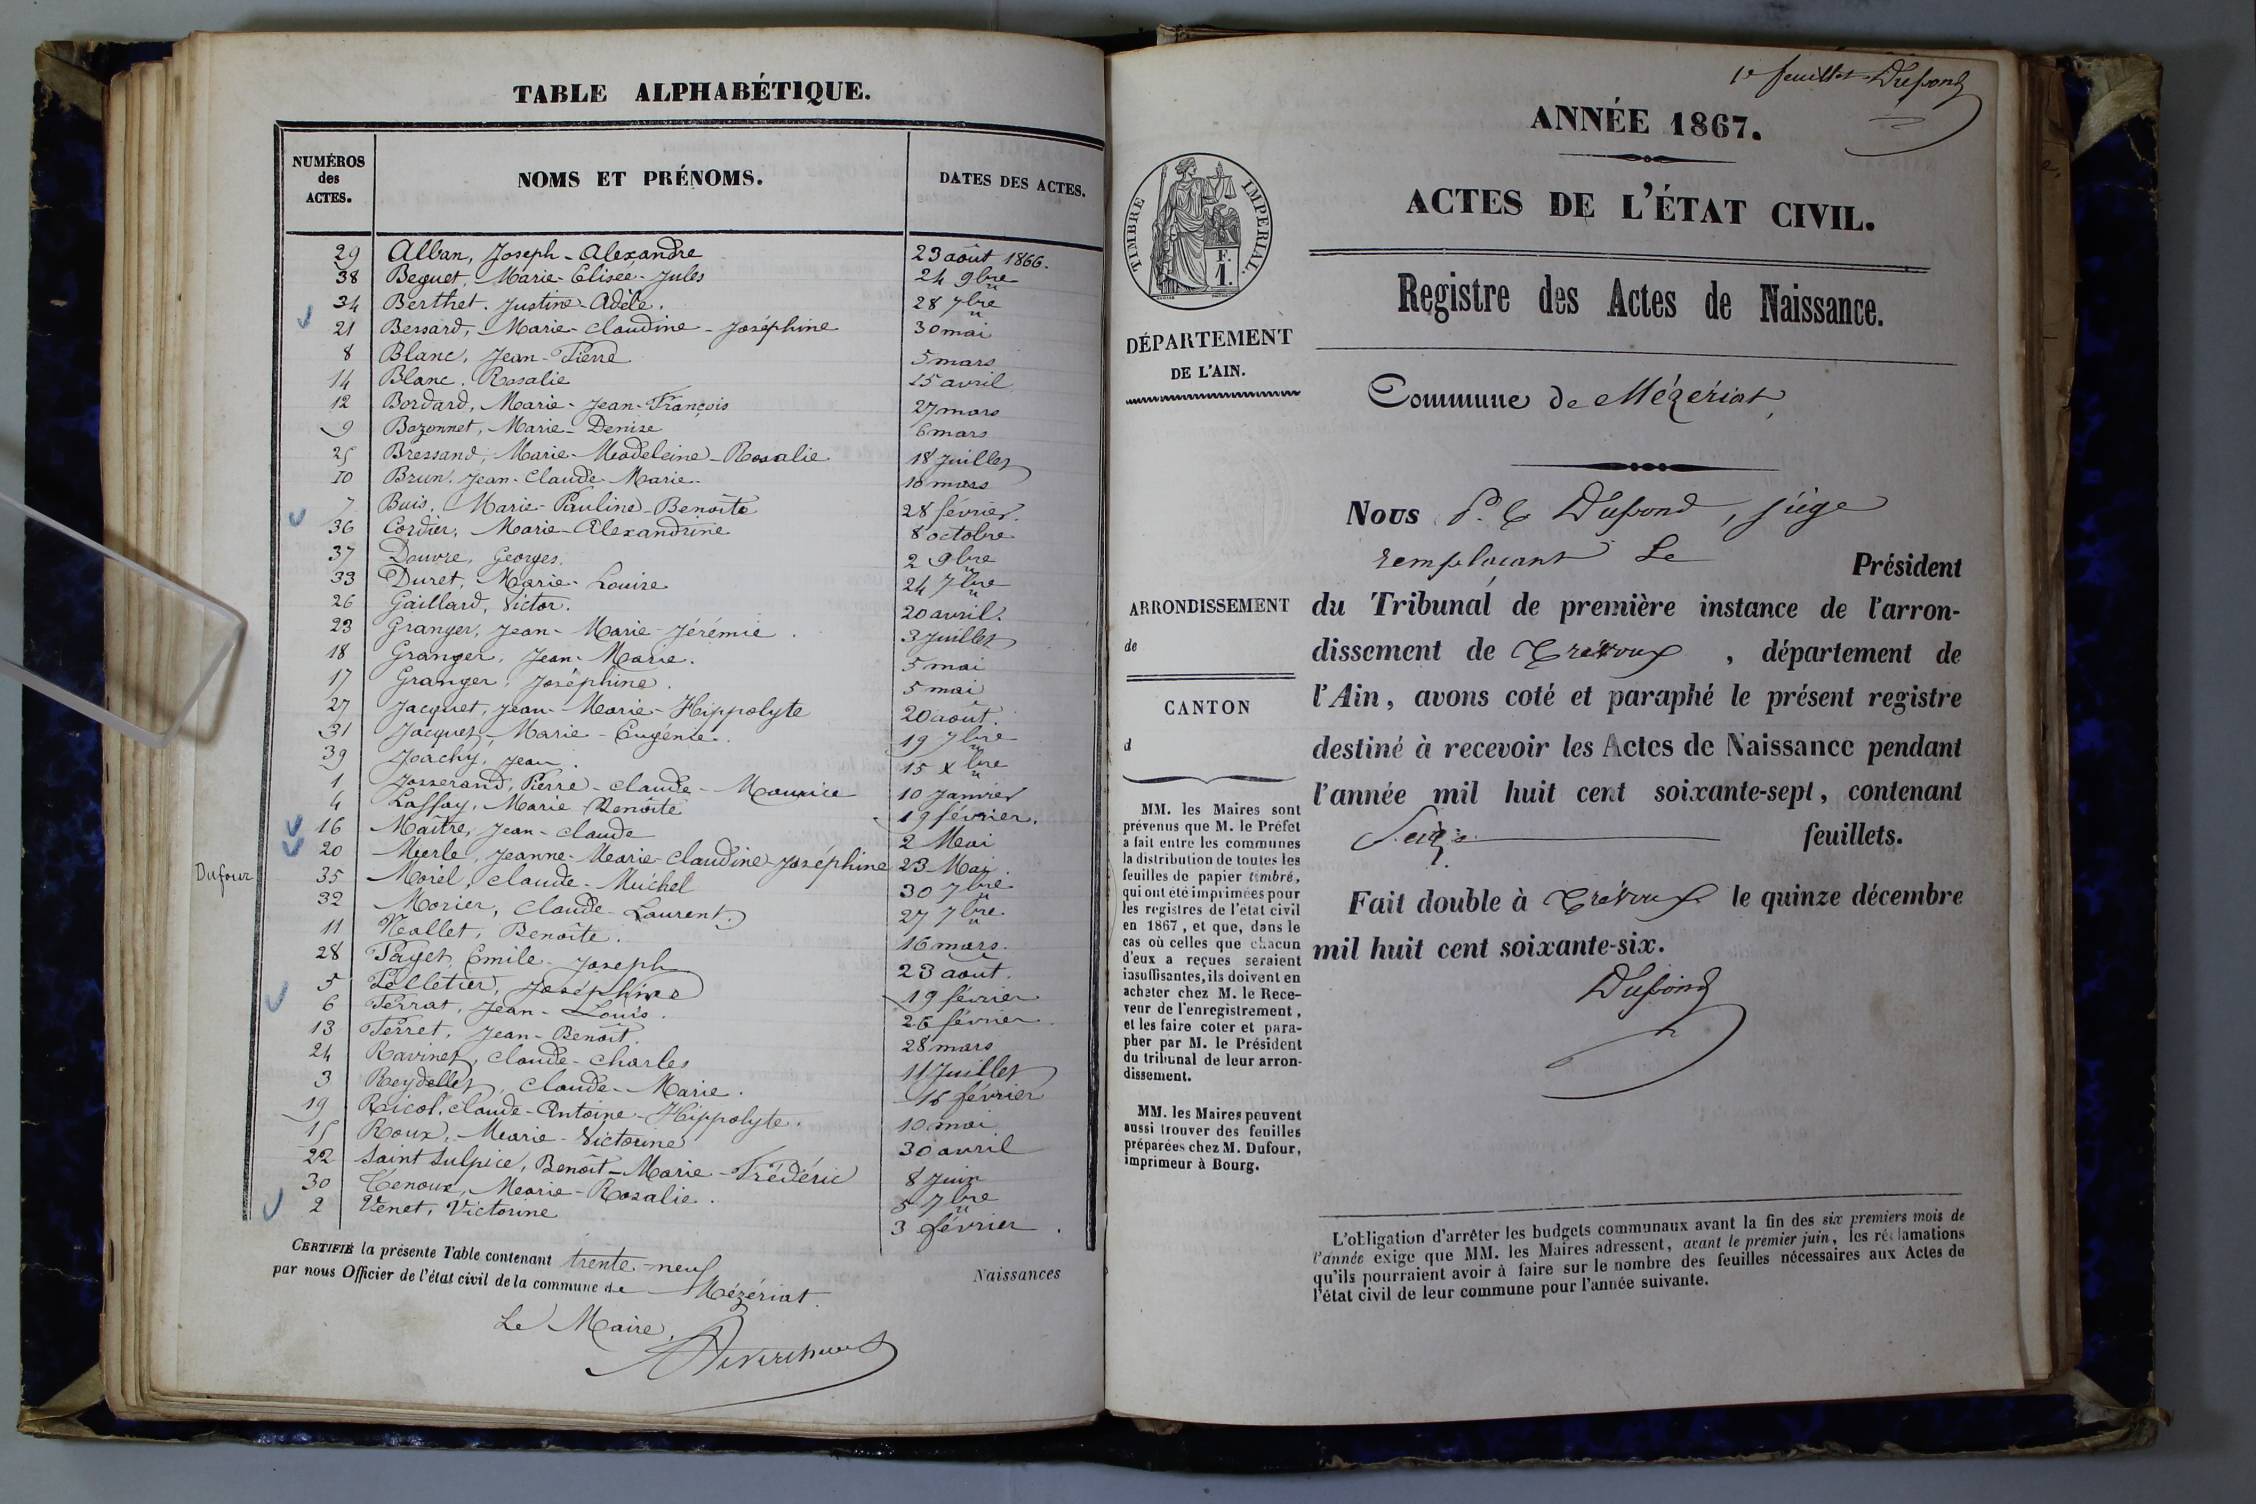 TABLE ALPHABÉTIQUE.
NUMÉROS des ACTES. NOMS ET PRÉNOMS. DATES DES ACTES.
29 Alban, Joseph-Alexandre 23 août 1866.
38 Beguet, Marie-Elisée-Jules 24 9bre
34 Berthet, Justine-Adèle. 28 7bre
21 Bessard, Marie-Claudine-Joséphine 30 mai
8 Blanc, Jean-Pierre 5 mars
14 Blanc, Rosalie 15 avril
12 Bordard, Marie-Jean-François 27 mars
9 Bozonnet, Marie-Denise 6 mars
25 Bressand, Marie-Madeleine-Rosalie 18 Juillet
10 Brun, Jean-Claude-Marie 10 mars
7 Buis, Marie-Pauline-Benoîte 28 février.
36 Cordier, Marie-Alexandrine 8 octobre
37 Douvre, Georges. 2 9bre
33 Duret, Marie-Louise 24 7bre
26 Gaillard, Victor. 20 avril.
23 Granger, Jean-Marie-Jérémie. 3 Juillet
18 Granger, Jean-Marie. 5 mai
17 Granger, Joséphine. 5 mai
27 Jacquet, Jean-Marie-Hippolyte 20 août.
31 Jacquet, Marie-Eugénie. 19 7bre
39 Joachy, Jean. 15 Xbre
1 Josserand, Pierre-Claude-Maurice 10 Janvier
4 Laffay, Marie-Benoîte 19 février.
16 Maître, Jean-Claude 2 Mai
20 Merle, Jeanne-Marie-Claudine-Joséphine 23 Mai.
Dufour
35 Morel, Claude-Michel 30 7bre
32 Morier, Claude-Laurent. 27 7bre
11 Nallet, Benoîte. 16 mars.
28 Payet, Emile-Joseph 23 août.
5 Pelletier, Joséphine 19 février
6 Perrat, Jean-Louis. 26 février.
13 Perret, Jean-Benoît. 28 mars
24 Ravinet, Claude-Charles 11 Juillet
3 Reydellet, Claude-Marie. 16 février
19 Ricol, Claude-Antoine-Hippolyte. 10 mai
15 Roux, Marie-Victorine 30 avril
22 Saint Sulpice, Benoît-Marie-Frédéric 8 Juin
30 Tenoux, Marie-Rosalie. 5 7bre
2 Venet, Victorine 3 février.
CERTIFIÉ la présente Table contenant trente-neuf
par nous Officier de l'état civil de la commune de Mézériat.
Naissances
Le Maire,
1e feuillet Dupond
ANNÉE 1867.
ACTES DE L'ÉTAT CIVIL.
Registre des Actes de Naissance.
TIMBRE IMPERIAL.
F.
1.
DÉPARTEMENT
DE L'AIN.
Commune de Mézériat,
Nous P. C. Dupond, juge
remplaçant le Président
ARRONDISSEMENT
de
CANTON
d
du Tribunal de première instance de l'arron-
dissement de Trévoux, département de
l'Ain, avons coté et paraphé le présent registre
destiné à recevoir les Actes de Naissance pendant
l'année mil huit cent soixante-sept, contenant
Seize feuillets.
Fait double à Trévoux le quinze décembre
mil huit cent soixante-six.
Dupond
MM. les Maires sont
prévenus que M. le Préfet
a fait entre les communes
la distribution de toutes les
feuilles de papier timbré,
qui ont été imprimées pour
les registres de l'état civil
en 1867, et que, dans le
cas où celles que chacun
d'eux a reçues seraient
insuffisantes, ils doivent en
acheter chez M. le Rece-
veur de l'enregistrement,
et les faire coter et para-
pher par M. le Président
du tribunal de leur arron-
dissement.
MM. les Maires peuvent
aussi trouver des feuilles
préparées chez M. Dufour,
imprimeur à Bourg.
L'obligation d'arrêter les budgets communaux avant la fin des six premiers mois de
l'année exige que MM. les Maires adressent, avant le premier juin, les réclamations
qu'ils pourraient avoir à faire sur le nombre des feuilles nécessaires aux Actes de
l'état civil de leur commune pour l'année suivante.